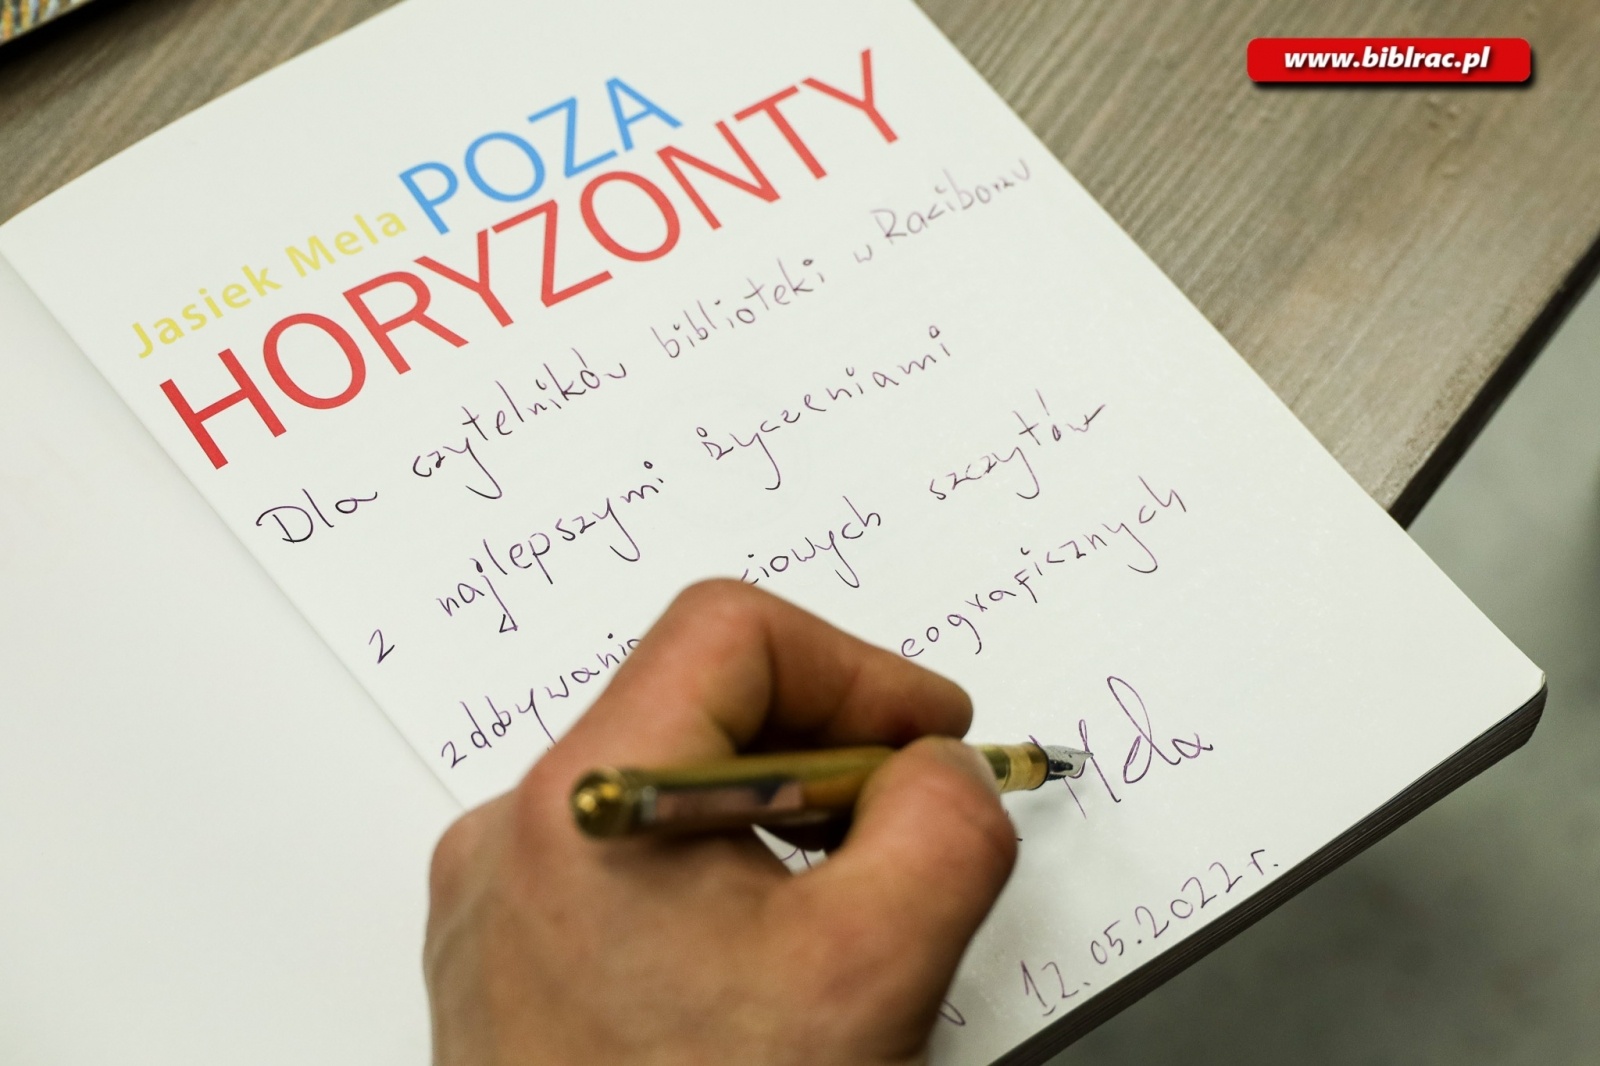 www.biblrac.pl
Jasiek Mela POZA
HORYZONTY
Dla czytelników biblioteki w Raciborzu
z najlepszymi życzeniami
zdobywania ciowych szczytów
eograficznych
Mela
12.05.2022 r.